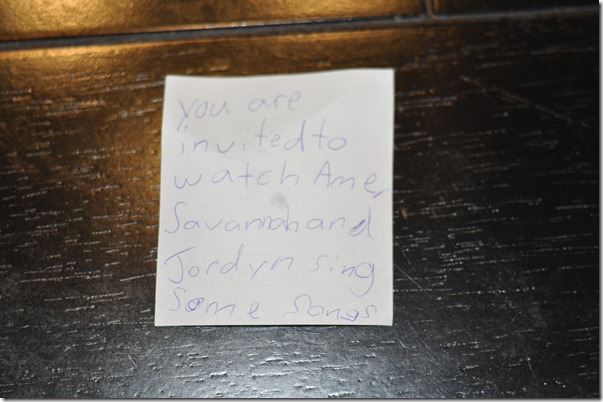 you are
invited to
watch Amer
Savannah and
Jordyn sing
Some Songs